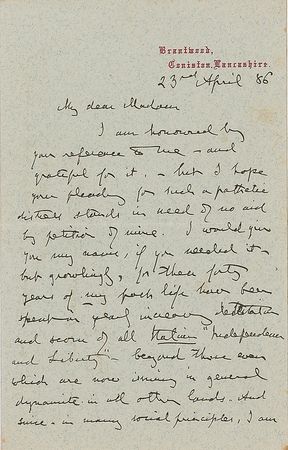 Brantwood,
Coniston, Lancashire.
23rd April 86
My dear Madam
I am honoured by
your reference to me - and
grateful for it. - but I hope
your pleading for such a pathetic
distress stands in need of no aid
by petition of mine. I would give
you my name, if you needed it -
but growlingly, for these forty
years of my past life have been
spent in yearly increasing
and scorn of all Italian "Independence
and Liberty" - beyond those even
which are now issuing in general
dynamite in all other lands. And
since - in many social principles, I am